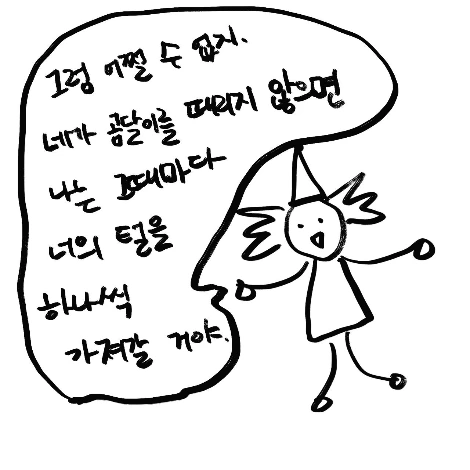 그럼 어쩔 수 없지.
네가 곰달이를 때리지 않으면
나는 그때마다
너의 털을
하나씩
가져갈 거야.